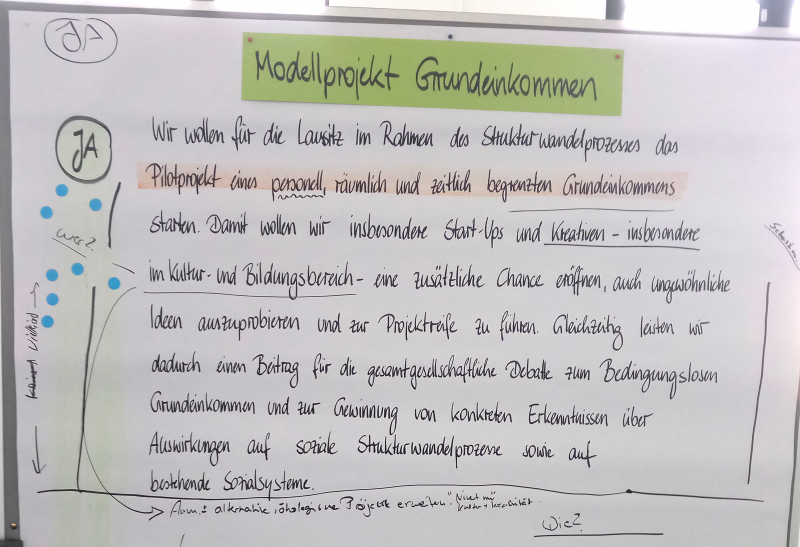 JA
Modellprojekt Grundeinkommen
JA
Wir wollen für die Lausitz im Rahmen des Strukturwandelprozesses das
Pilotprojekt eines personell, räumlich und zeitlich begrenzten Grundeinkommens
starten. Damit wollen wir insbesondere Start-Ups und Kreativen - insbesondere
im Kultur- und Bildungsbereich - eine zusätzliche Chance eröffnen, auch ungewöhnliche
Ideen auszuprobieren und zur Projektreife zu führen. Gleichzeitig leisten wir
dadurch einen Beitrag für die gesamtgesellschaftliche Debatte zum Bedingungslosen
Grundeinkommen und zur Gewinnung von konkreten Erkenntnissen über
Auswirkungen auf soziale Strukturwandelprozesse sowie auf
bestehende Sozialsysteme.
Wer?
Projekte erweitern
Wie?